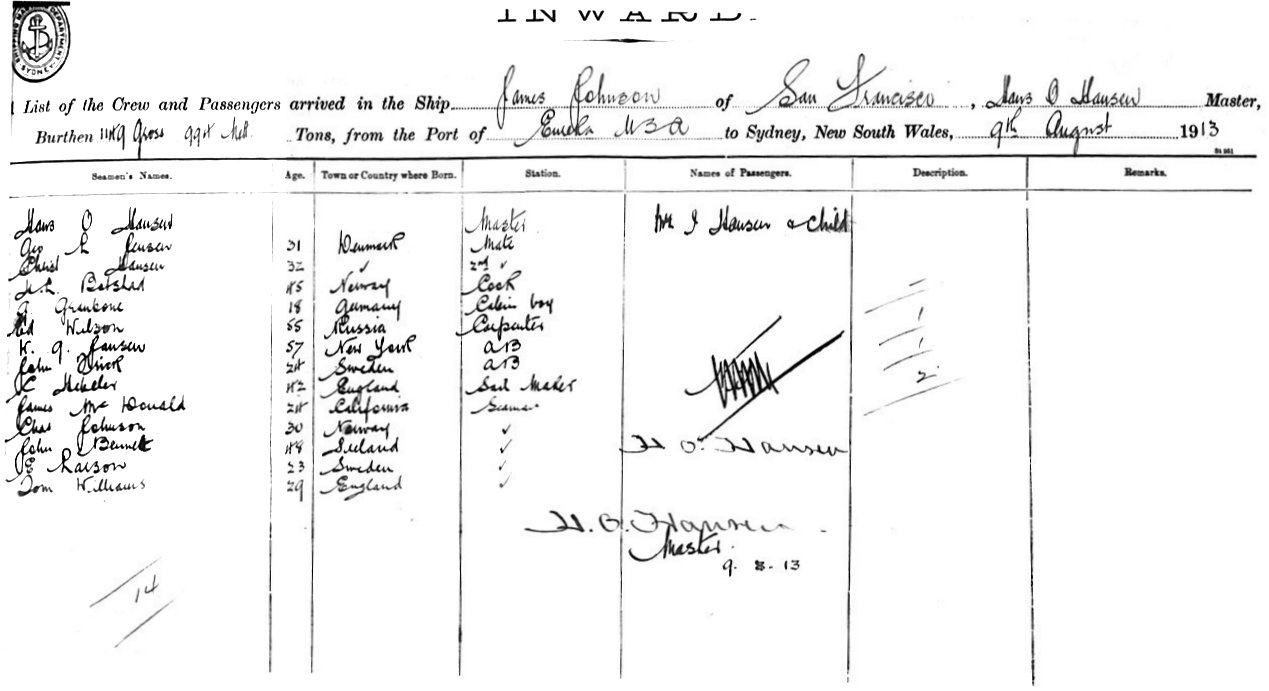 SHIPPING MASTER'S DEPARTMENT. SYDNEY.
INWARD.
List of the Crew and Passengers arrived in the Ship James Johnson of San Francisco, Hans O Hansen Master,
Burthen Gross Tons, from the Port of Eureka USA to Sydney, New South Wales, 9th August 1913
Seamen's Names. Age. Town or Country where Born. Station. Names of Passengers. Description. Remarks.
Hans O Hansen Master Mrs J Hansen & Child
Geo L Jensen 31 Denmark Mate
Christ Hansen 32 ✓ 2nd ✓
45 Norway Cook
18 Germany Cabin boy
Ed Wilson 55 Russia Carpenter 1
K. G. Jansen 57 New York AB 1
John 24 Sweden AB
C 42 England Sail Maker 2
James McDonald 24 California Seaman
Chas Johnson 30 Norway ✓
John Bennett 48 ✓ H O Hansen
E 23 Sweden ✓
Tom Williams 29 England ✓
H. O. Hansen
Master.
9. 8. 13
14